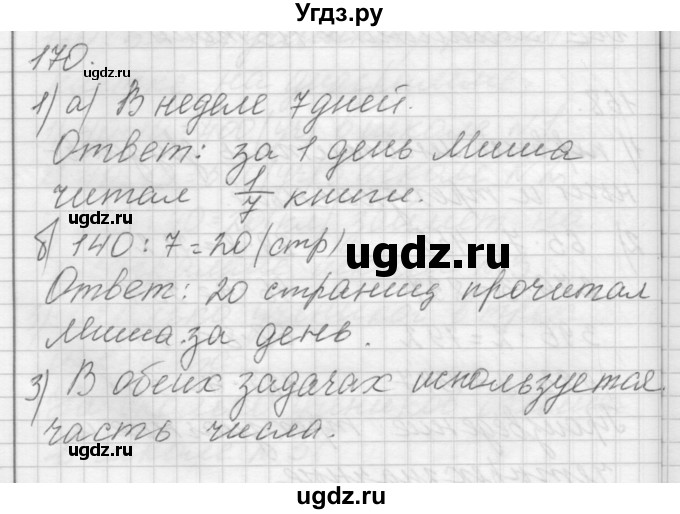 Угдз.ру
170.
1) а) В неделе 7 дней.
Ответ: за 1 день Миша
читал 1/7 книги.
б) 140 : 7 = 20 (стр)
Ответ: 20 страниц прочитал
Миша за день.
3) В обеих задачах используется
часть числа.
ugdz.ru
ugdz.ru
ugdz.ru
ugdz.ru
ugdz.ru
ugdz.ru
ugdz.ru